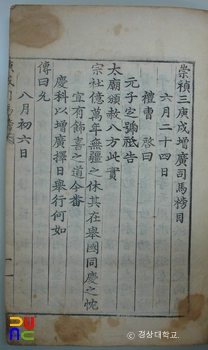 崇禎三庚戌增廣司馬榜目
六月二十四日
禮曹 啓曰
元子定號祗告
太廟頒赦八方此實
宗社億萬年無疆之休其在舉國同慶之忱
宜有飾喜之道今番
慶科以增廣擇日舉行何如
傳曰允
八月初六日
경상대학교